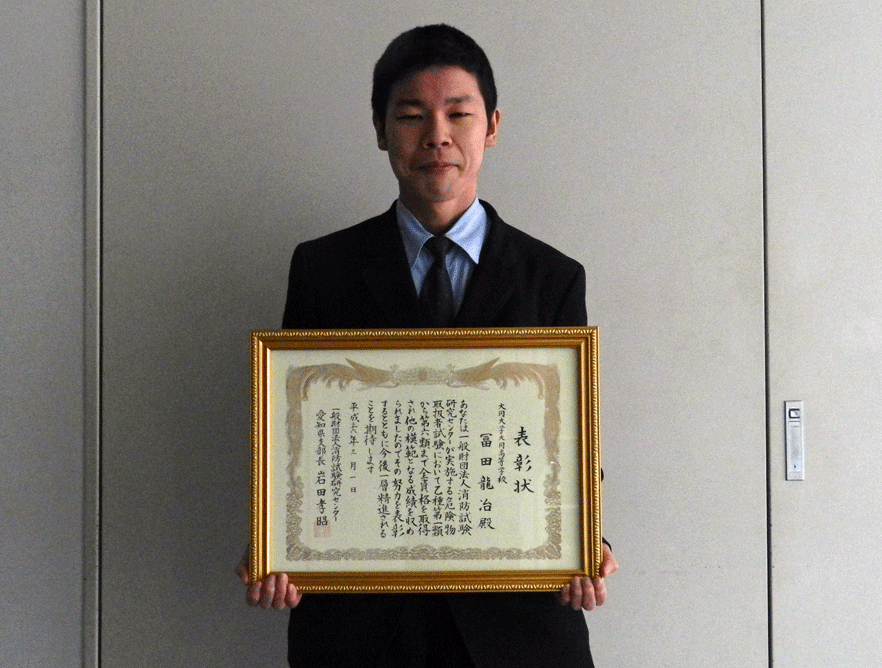 表彰状
大同大学大同高等学校
冨田龍冶殿
あなたは一般財団法人消防試験
研究センターが実施する危険物
取扱者試験において乙種第一類
から第六類まで全資格を取得
され他の模範となる成績を収め
られましたのでその努力を表彰
するとともに今後一層精進される
ことを期待します
平成二六年三月一日
一般財団法人消防試験研究センター
愛知県支部長 岩田孝昭